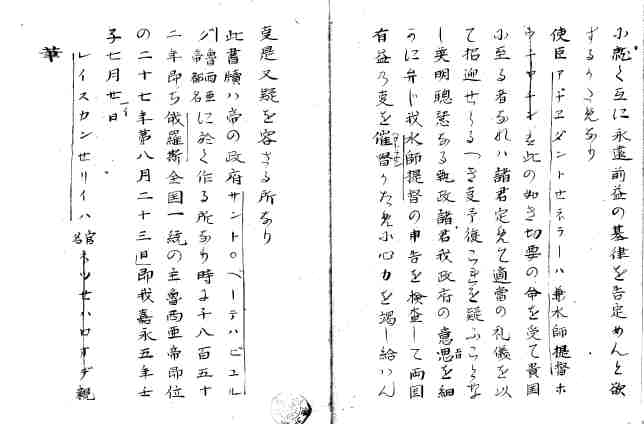 小魔く互に永遠両益の基律を告定めんと欲
するかため なり
使臣アヂユダントセネラール兼水師提督ホ
ウチヤチンを此の如き切要の命を受て貴国
に至る者なれハ諸君定めて適當の礼儀を以
て招迎せらるへき支予後これを疑ふことな
し英明聰慧なる執政諸君我政府の意思を細
かに弁し我水師提督の申告を検査して両国
有益の支を催督するため小心力を竭し給ハん
支是又疑を容さる所なり
此書牘ハ帝の政府サントペーテルビユル
グ魯西亜帝都名に於く作る所なり時に千八百五十
二年即ち俄羅斯全国一統の主魯西亜帝即位
の二十七年第八月二十三日即我嘉永五年壬
子七月廿一日
レイスカンセリイル官名ネツセルロオデ親
筆